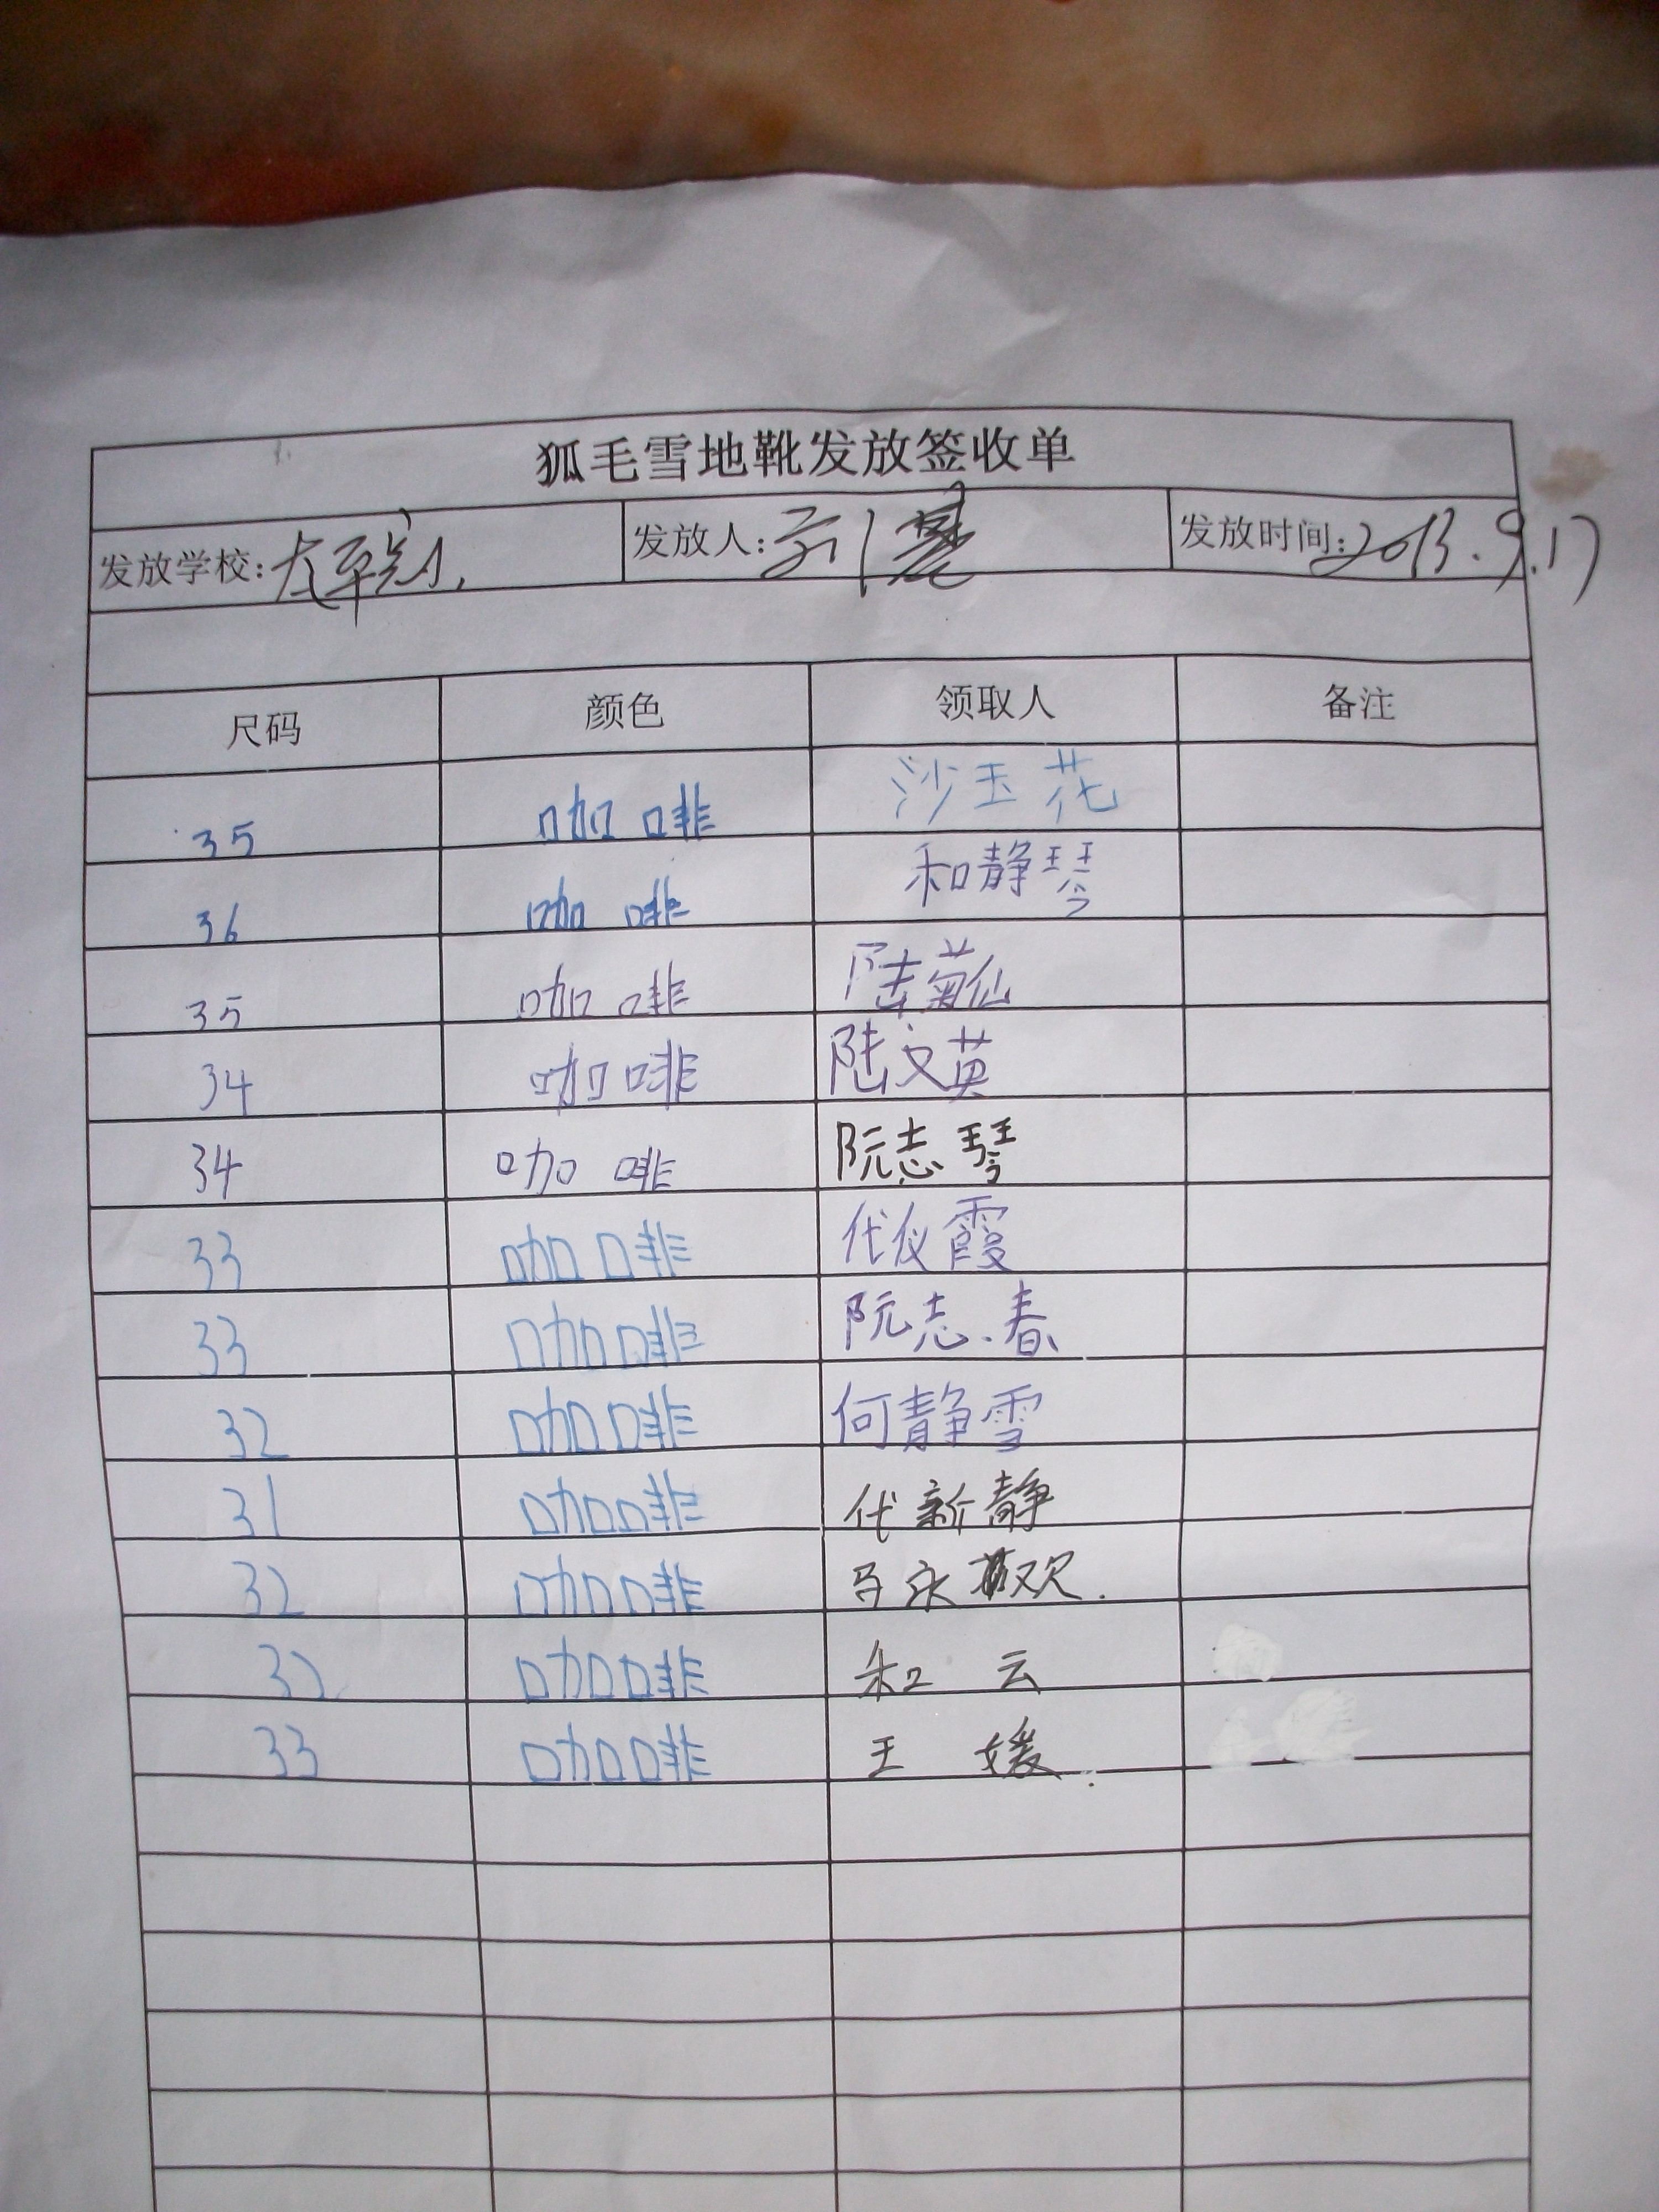 狐毛雪地靴发放签收单
发放学校: 发放人: 发放时间: 2013.9.17
尺码 颜色 领取人 备注
35 咖啡 沙玉花
36 咖啡 和静琴
35 咖啡 陆菊仙
34 咖啡 陆文英
34 咖啡 阮志琴
33 咖啡 代仪霞
33 咖啡 阮志春
32 咖啡 何静雪
31 咖啡 代新静
32 咖啡 马永欢
32 咖啡 和云
33 咖啡 王媛